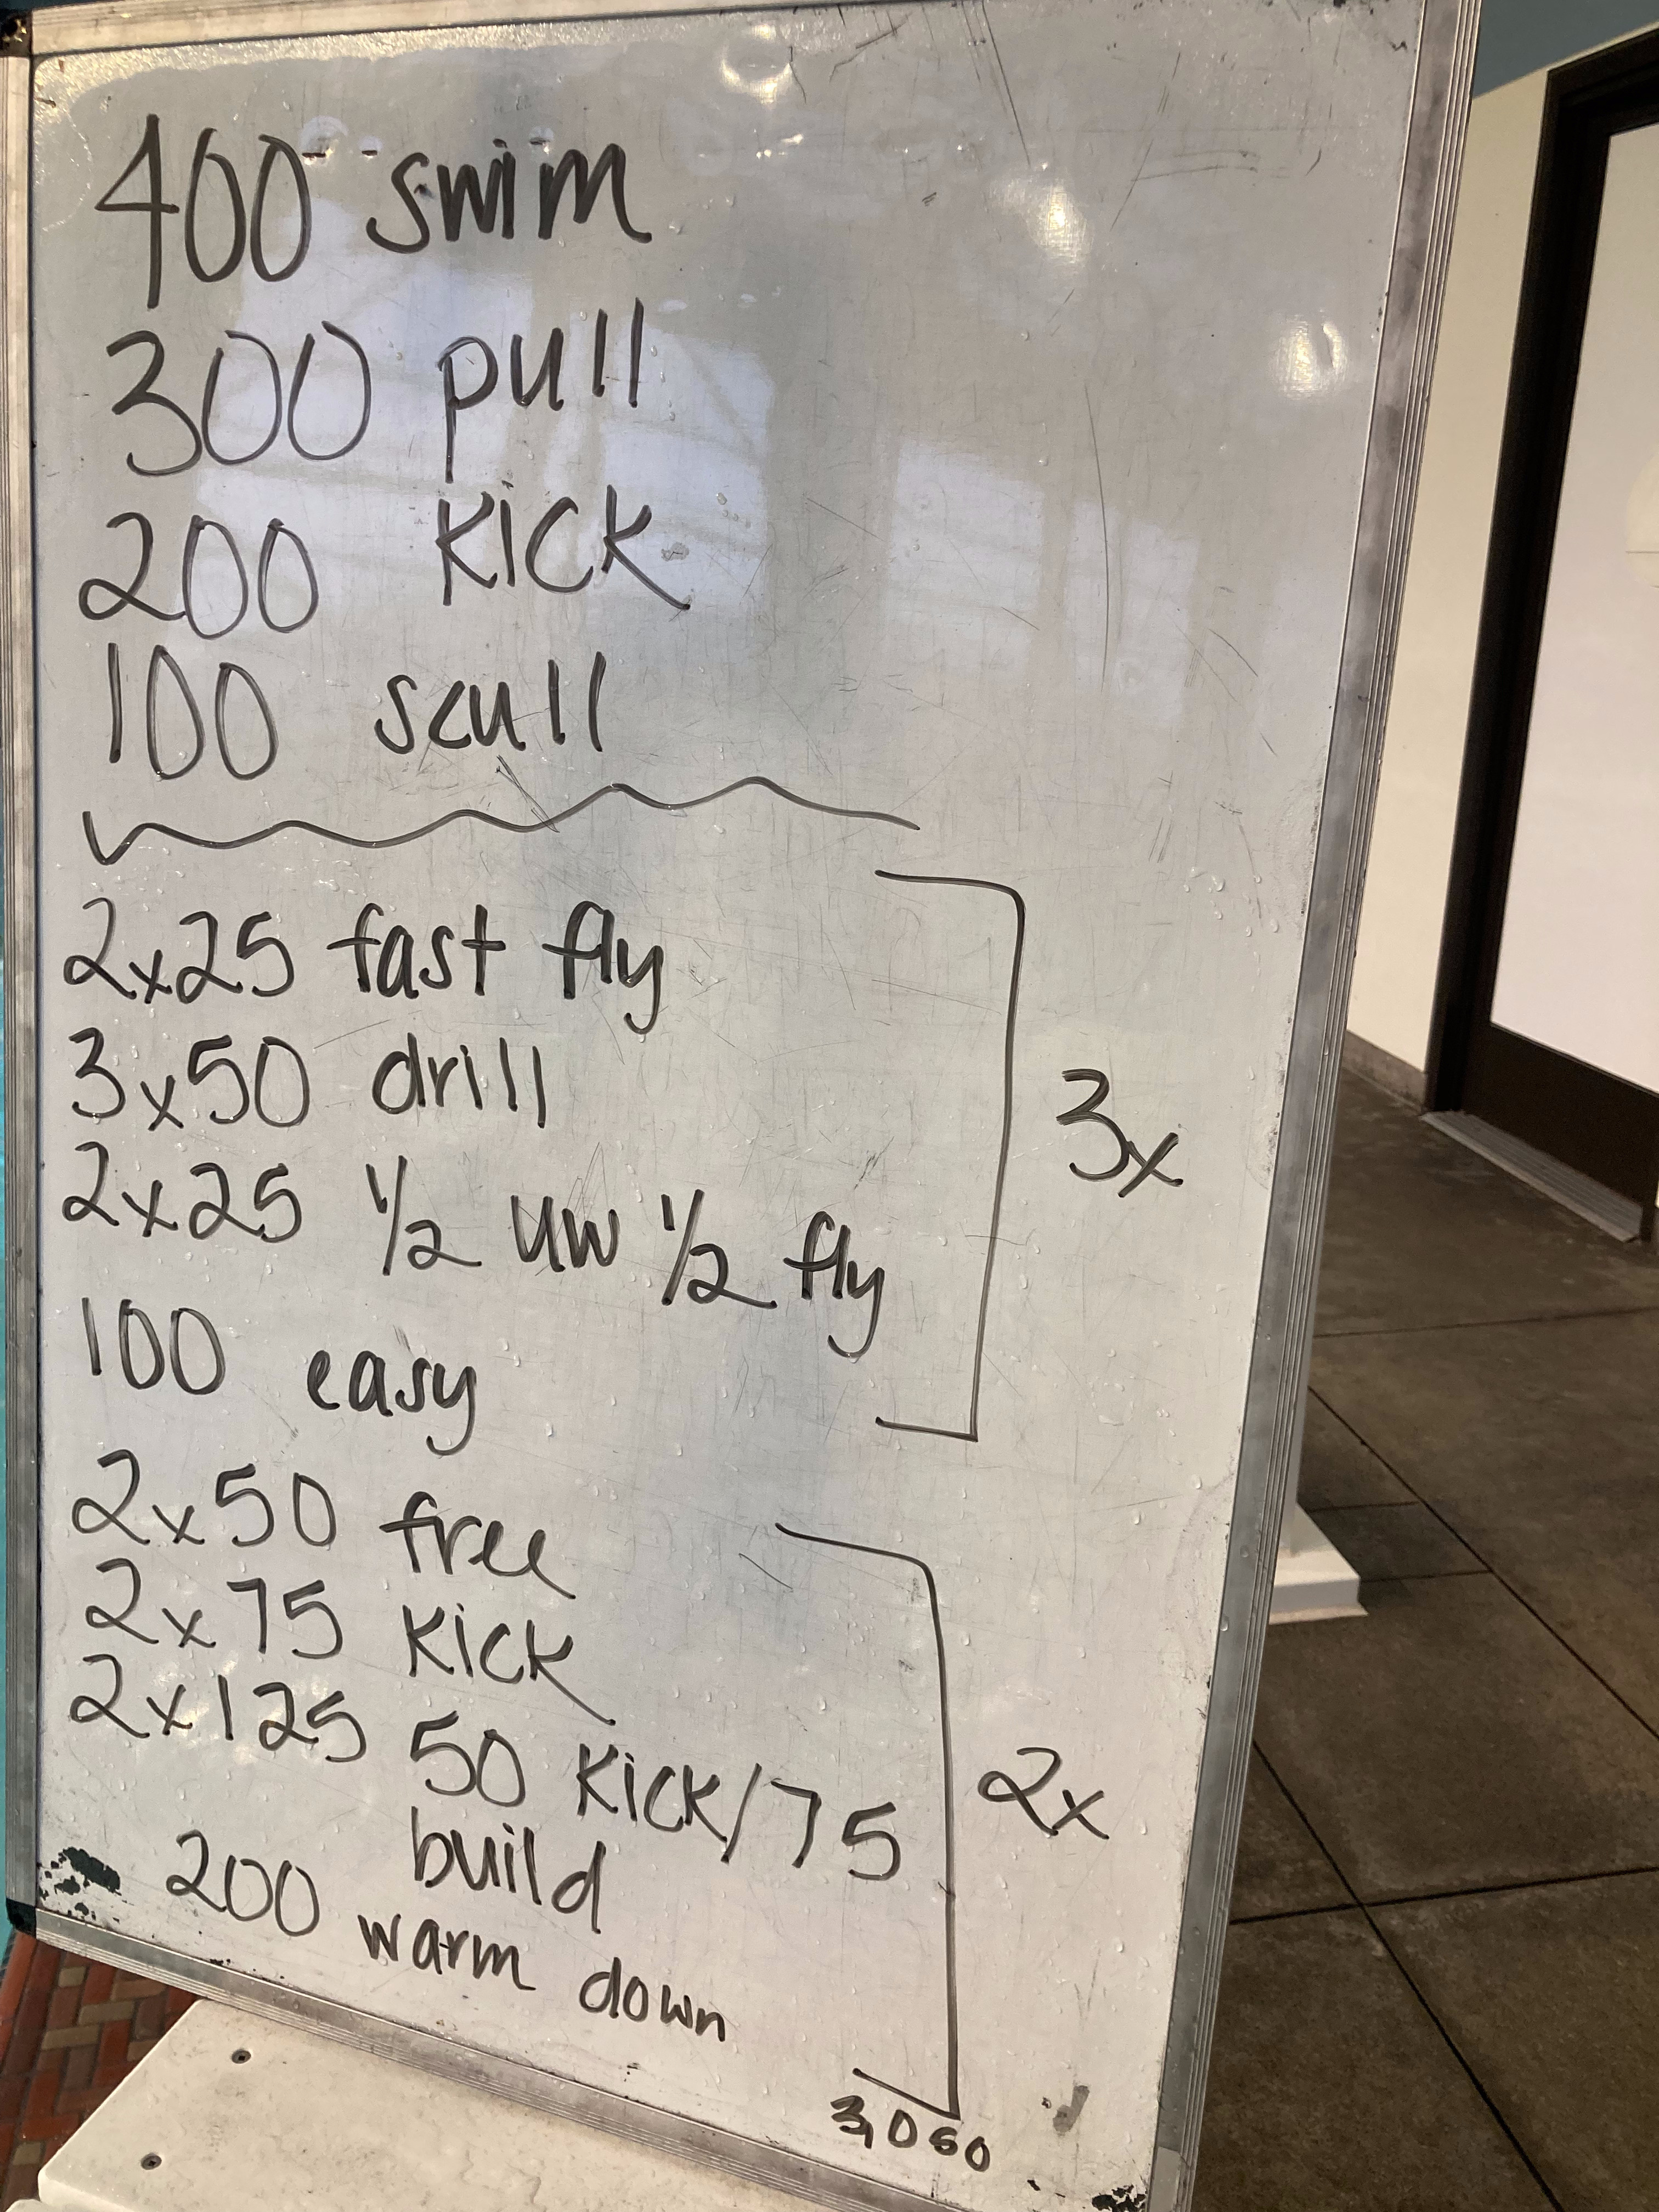 400 swim
300 pull
200 kick
100 scull
2x25 fast fly
3x50 drill
2x25 1/2 uw 1/2 fly
100 easy
3x
2x50 free
2x75 kick
2x125 50 kick/75
build
2x
200 warm down
3,050